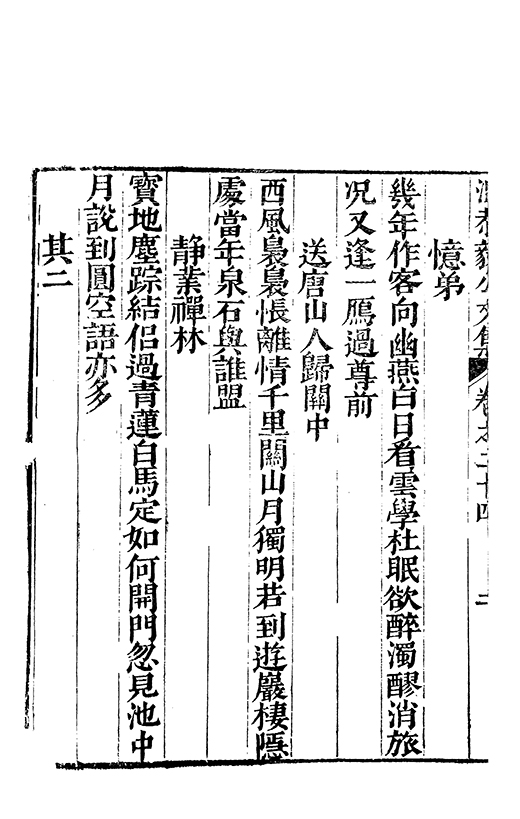 溫恭毅公文集 卷之二十四 二
憶弟
幾年作客向幽燕白日看雲學杜眠欲醉濁醪消旅
况又逢一鴈過尊前
送唐山人歸關中
西風裊裊悵離情千里關山月獨明若到遊巖棲隱
處當年泉石與誰盟
靜業禪林
寶地塵踪結侶過青蓮白馬定如何開門忽見池中
月說到圓空語亦多
其二